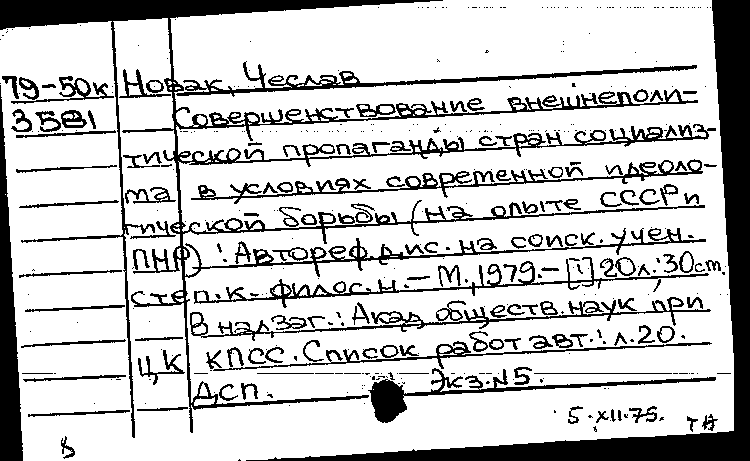 79-50к Новак, Чеслав
3581 Совершенствование внешнеполи-
тической пропаганды стран социализ-
ма в условиях современной идеоло-
гической борьбы (на опыте СССР и
ПНР) : Автореф.дис. на соиск. учен.
степ. к. филос. н. - М., 1979. - [1], 20 л.; 30 cm.
В надзаг.: Акад. обществ. наук при
ЦК КПСС. Список работ авт.: л. 20.
ДСП. Экз. №5.
5.XII.75. тн